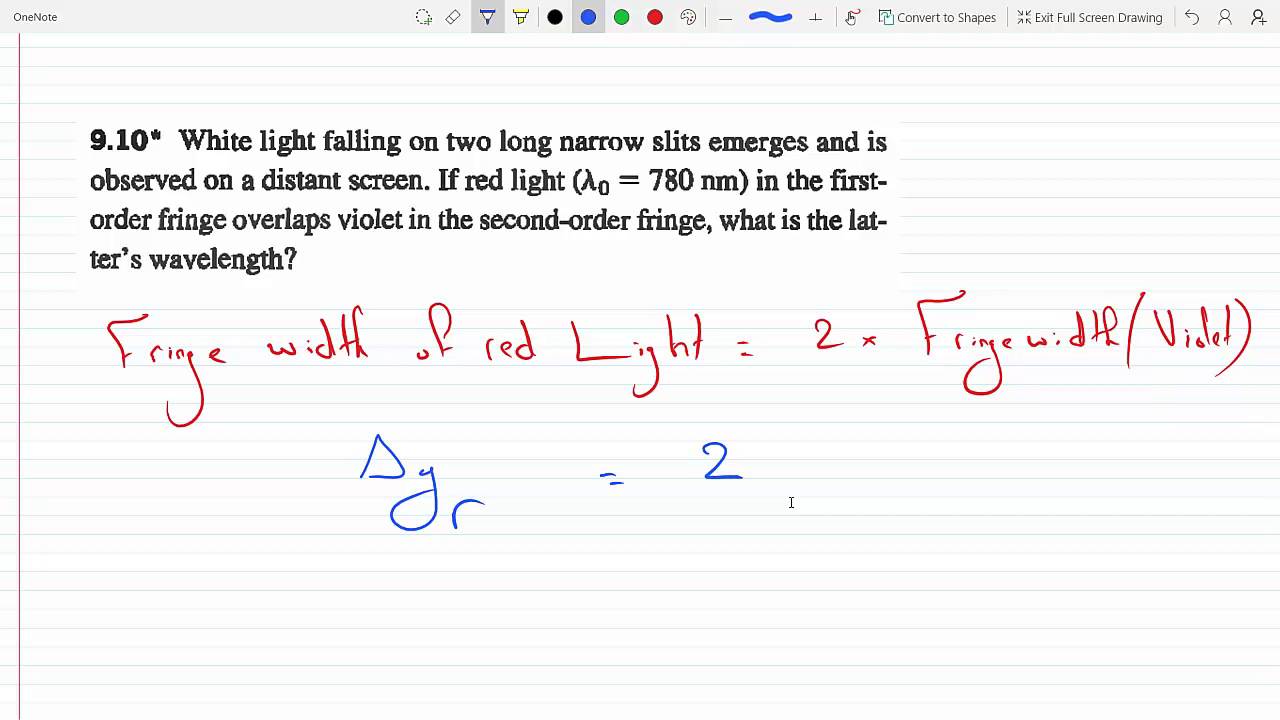 OneNote
Convert to Shapes
Exit Full Screen Drawing
9.10* White light falling on two long narrow slits emerges and is
observed on a distant screen. If red light (λ₀ = 780 nm) in the first-
order fringe overlaps violet in the second-order fringe, what is the lat-
ter's wavelength?
Fringe width of red Light = 2 × Fringe width (Violet)
Δyr = 2